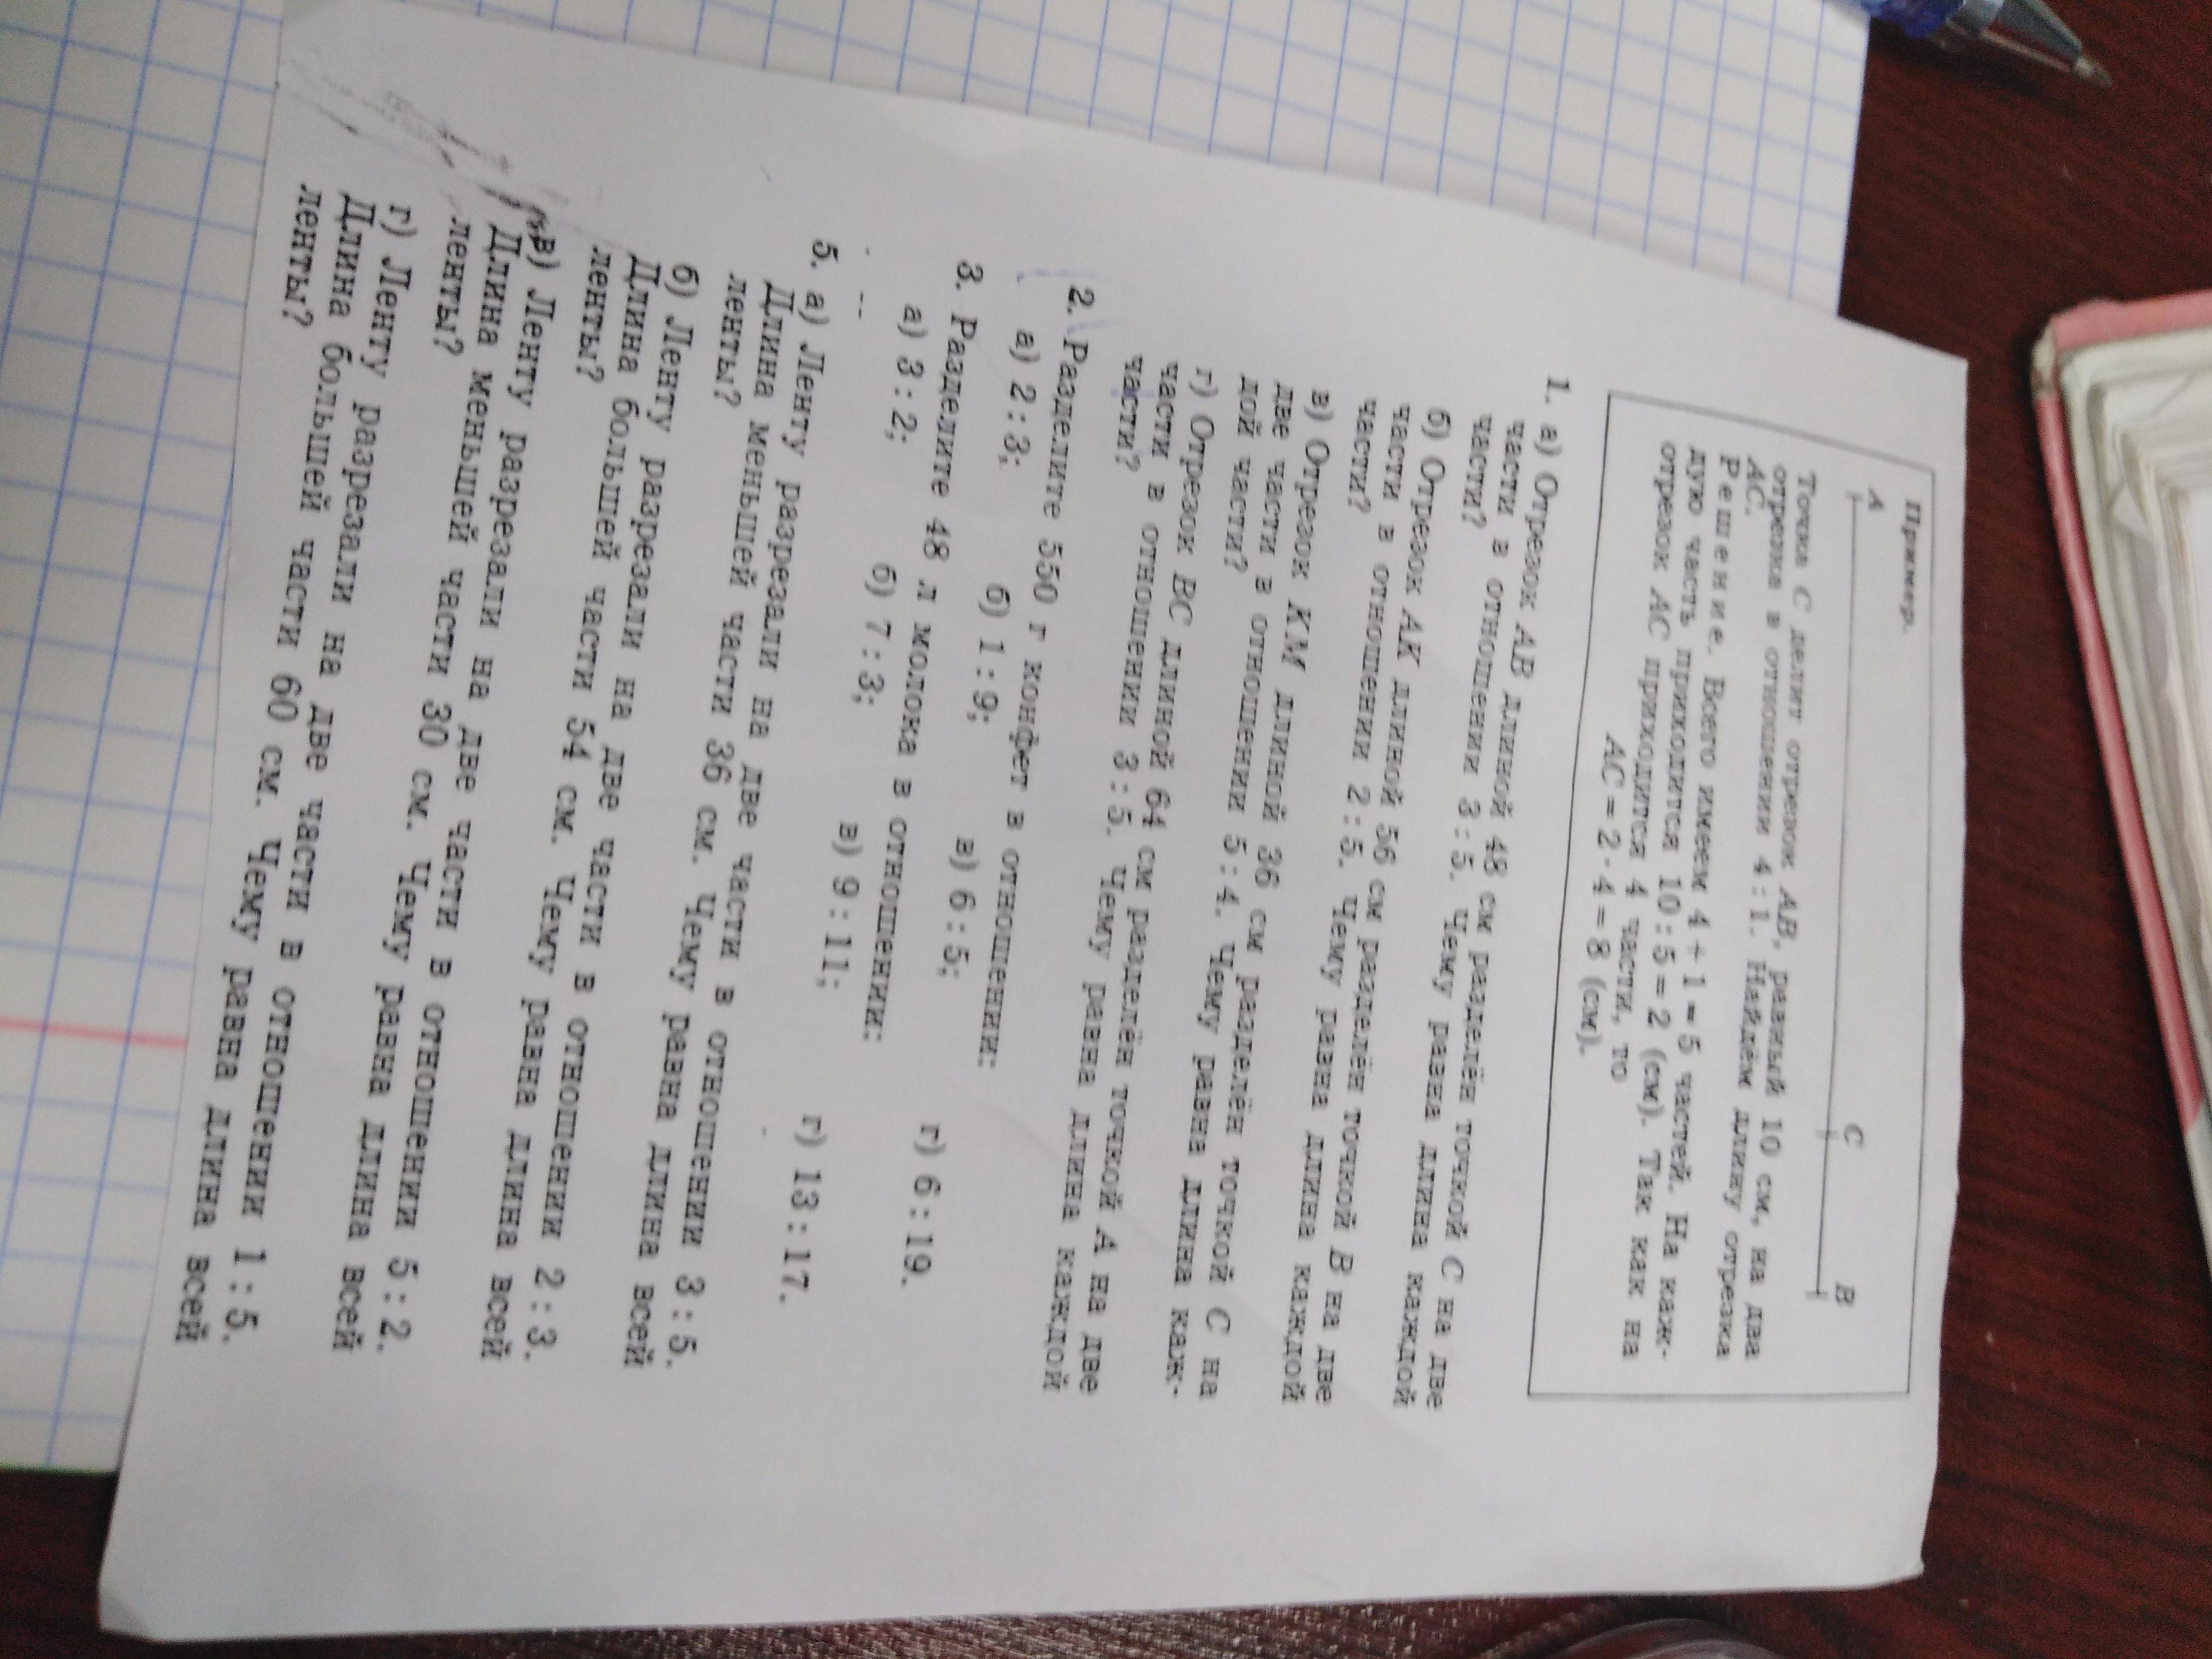 Пример.
A C B
Точка C делит отрезок AB, равный 10 см, на два
отрезка в отношении 4 : 1. Найдём длину отрезка
AC.
Решение. Всего имеем 4 + 1 = 5 частей. На каж-
дую часть приходится 10 : 5 = 2 (см). Так как на
отрезок AC приходится 4 части, то
AC = 2 · 4 = 8 (см).
1. а) Отрезок AB длиной 48 см разделён точкой C на две
части в отношении 3 : 5. Чему равна длина каждой
части?
б) Отрезок AK длиной 56 см разделён точкой B на две
части в отношении 2 : 5. Чему равна длина каждой
части?
в) Отрезок KM длиной 36 см разделён точкой C на
две части в отношении 5 : 4. Чему равна длина каж-
дой части?
г) Отрезок BC длиной 64 см разделён точкой A на две
части в отношении 3 : 5. Чему равна длина каждой
части?
2. Разделите 550 г конфет в отношении:
а) 2 : 3; б) 1 : 9; в) 6 : 5; г) 6 : 19.
3. Разделите 48 л молока в отношении:
а) 3 : 2; б) 7 : 3; в) 9 : 11; г) 13 : 17.
5. а) Ленту разрезали на две части в отношении 3 : 5.
Длина меньшей части 36 см. Чему равна длина всей
ленты?
б) Ленту разрезали на две части в отношении 2 : 3.
Длина большей части 54 см. Чему равна длина всей
ленты?
в) Ленту разрезали на две части в отношении 5 : 2.
Длина меньшей части 30 см. Чему равна длина всей
ленты?
г) Ленту разрезали на две части в отношении 1 : 5.
Длина большей части 60 см. Чему равна длина всей
ленты?